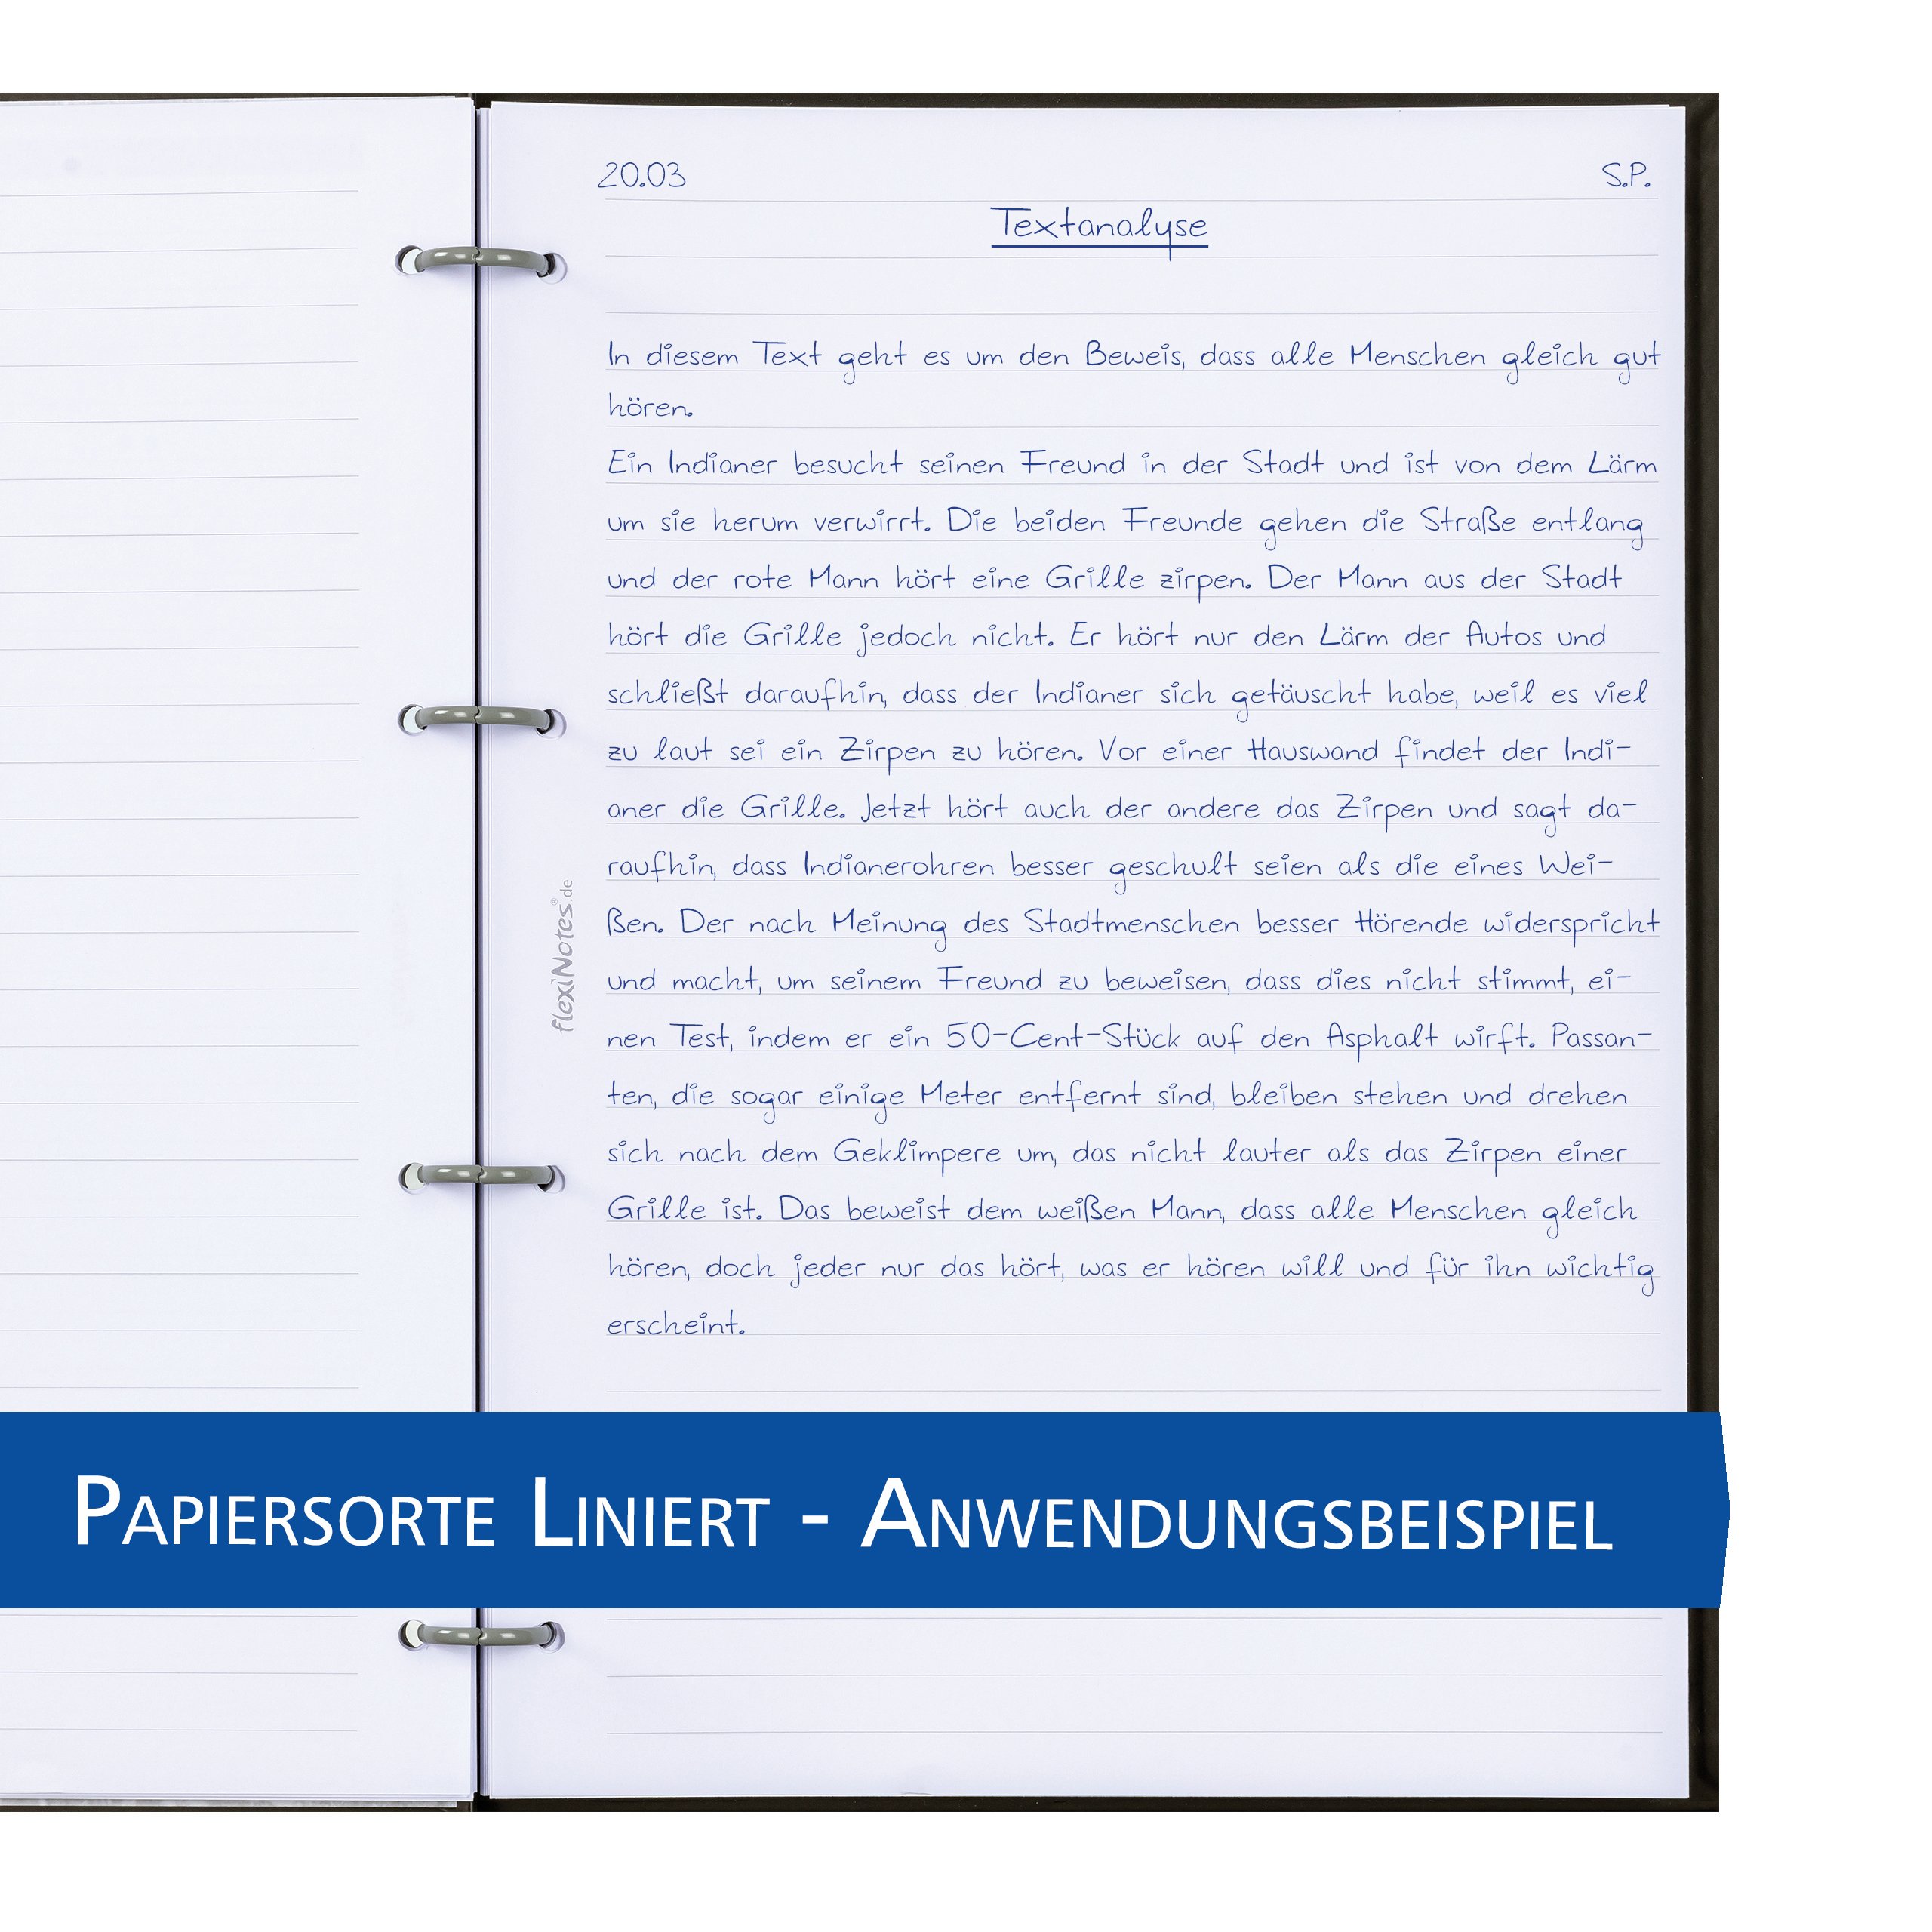 20.03 S.P.
Textanalyse
In diesem Text geht es um den Beweis, dass alle Menschen gleich gut
hören.
Ein Indianer besucht seinen Freund in der Stadt und ist von dem Lärm
um sie herum verwirrt. Die beiden Freunde gehen die Straße entlang
und der rote Mann hört eine Grille zirpen. Der Mann aus der Stadt
hört die Grille jedoch nicht. Er hört nur den Lärm der Autos und
schließt daraufhin, dass der Indianer sich getäuscht habe, weil es viel
zu laut sei ein Zirpen zu hören. Vor einer Hauswand findet der Indi-
aner die Grille. Jetzt hört auch der andere das Zirpen und sagt da-
raufhin, dass Indianerohren besser geschult seien als die eines Wei-
ßen. Der nach Meinung des Stadtmenschen besser Hörende widerspricht
und macht, um seinem Freund zu beweisen, dass dies nicht stimmt, ei-
nen Test, indem er ein 50-Cent-Stück auf den Asphalt wirft. Passan-
ten, die sogar einige Meter entfernt sind, bleiben stehen und drehen
sich nach dem Geklimpere um, das nicht lauter als das Zirpen einer
Grille ist. Das beweist dem weißen Mann, dass alle Menschen gleich
hören, doch jeder nur das hört, was er hören will und für ihn wichtig
erscheint.
flexiNotes®.de
Papiersorte Liniert - Anwendungsbeispiel